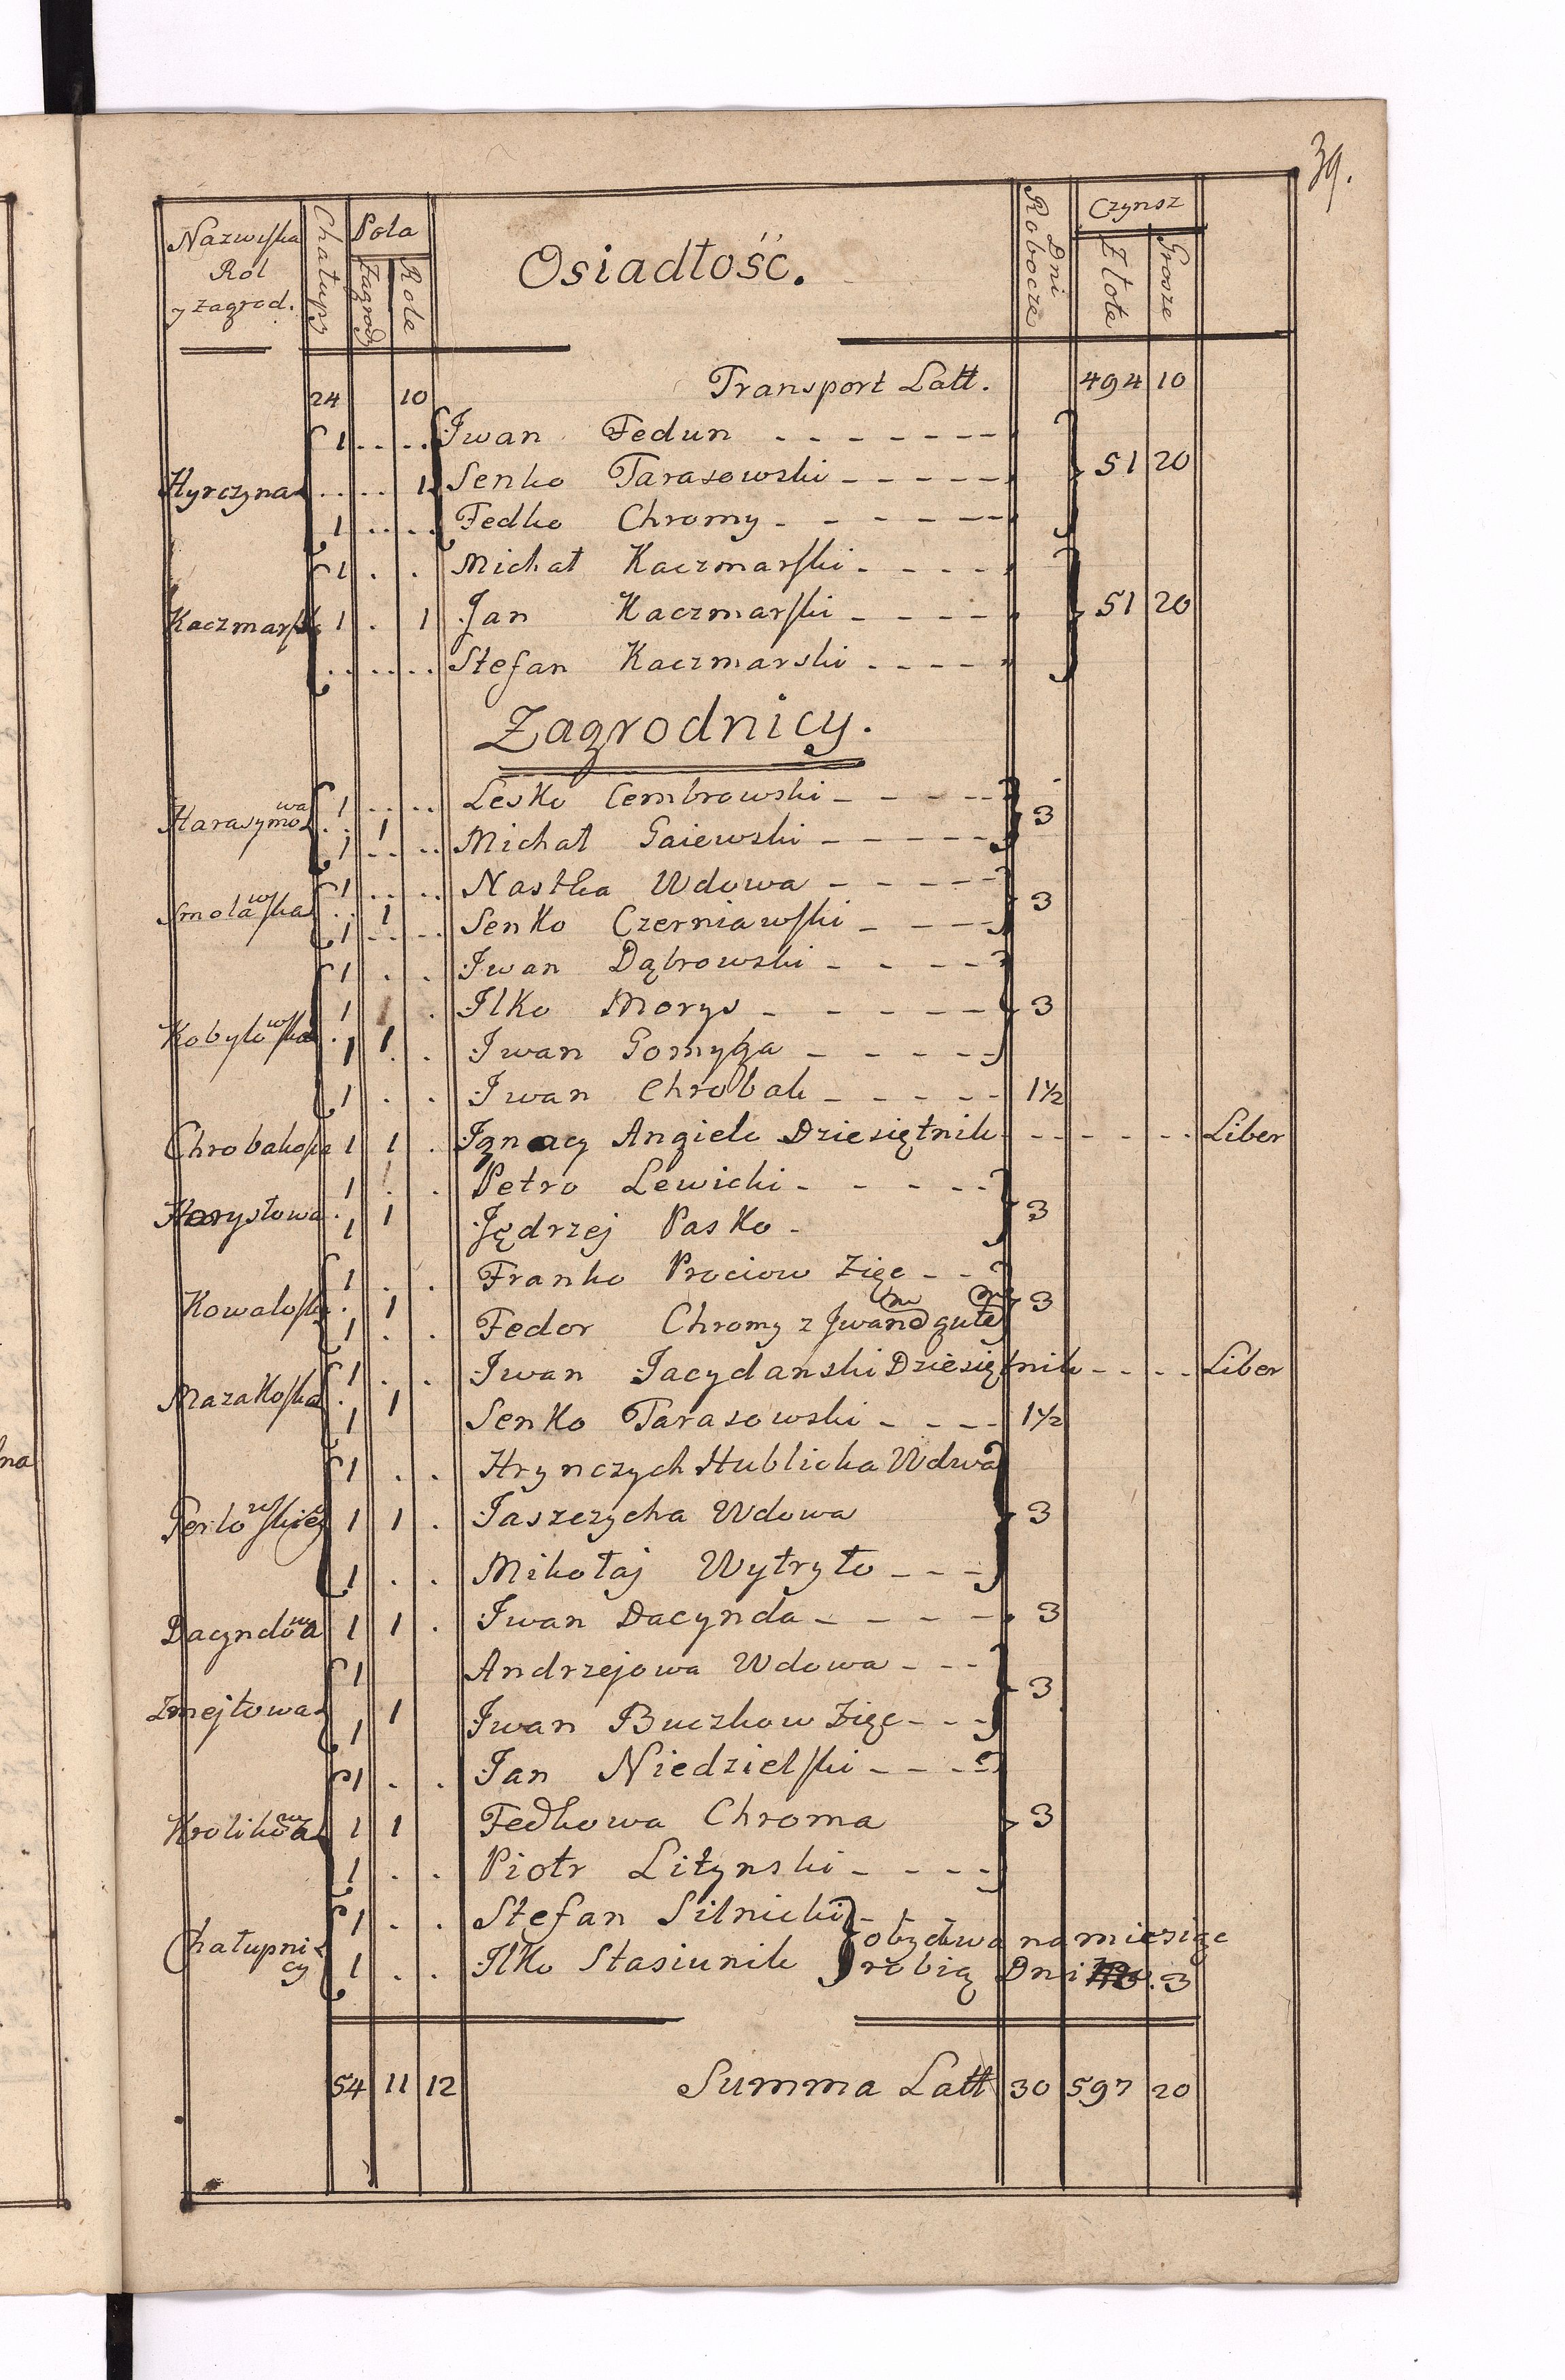 39.
Nazwiska Rol y Zagrod. Chałupy Pola Zagrod Role Osiadłość. Dni Robocze Czynsz Złote Grosze
24 10 Transport Latt. 494 10
1 Iwan Fedun
Hyrczyna 1 Senko Tarasowski 51 20
1 Fedko Chromy
1 Michał Kaczmarski
Kaczmarska 1 1 Jan Kaczmarski 51 20
Stefan Kaczmarski
Zagrodnicy.
1 Lesko Cembrowski
Harasymowa 1 3
1 Michał Gaiewski
1 Nastka Wdowa
Smolawska 1 3
1 Senko Czerniawski
1 Iwan Dąbrowski
1 Ilko Morys 3
Kobylowska 1
1 Iwan Gomyga
1 Iwan Chrobak 1½
Chrobakoska 1 1 Ignacy Angiele Dziesiętnik Liber
1 Petro Lewicki
Harystowa 1 3
1 Jędrzej Pasko
1 Franko Prociow Zięc
Kowaloska 1 3
1 Fedor Chromy z Iwanem Dgułem
1 Iwan Jacydanski Dziesiętnik Liber
Mazakoska 1
1 Senko Tarasowski 1½
1 Hrynczych Hublicka Wdwa
Perlowskiey 1 1 Jaszczycha Wdowa 3
1 Mikołaj Wytryło
Dacyndowa 1 1 Iwan Dacynda 3
1 Andrzejowa Wdowa
Zmejłowa 1 3
1 Iwan Buczkow Zięc
1 Jan Niedzielski
Krolikowa 1 1 Fedkowa Chroma 3
1 Piotr Litynski
1 Stefan Silnicki
Chałupnicy obydwa na miesiąc
1 Ilko Stasiunik robią Dni 3
54 11 12 Summa Latt 30 597 20